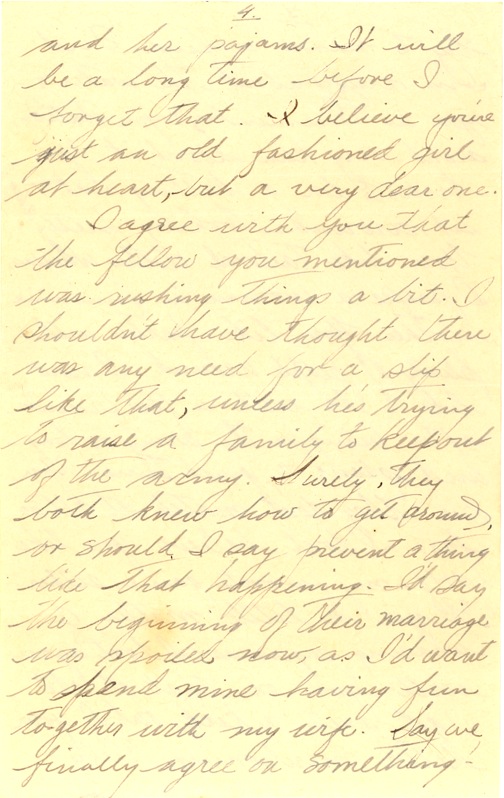 4.
and her pajams. It will
be a long time before I
forget that. I believe you're
just an old fashioned girl
at heart, but a very dear one.
I agree with you that
the fellow you mentioned
was rushing things a bit. I
shouldn't have thought there
was any need for a slip
like that, unless he's trying
to raise a family to keep out
of the army. Surely, they
both knew how to get around,
or should I say prevent a thing
like that happening. I'd say
the beginning of their marriage
was spoiled now, as I'd want
to spend mine having fun
together with my wife. Say we
finally agree on something!